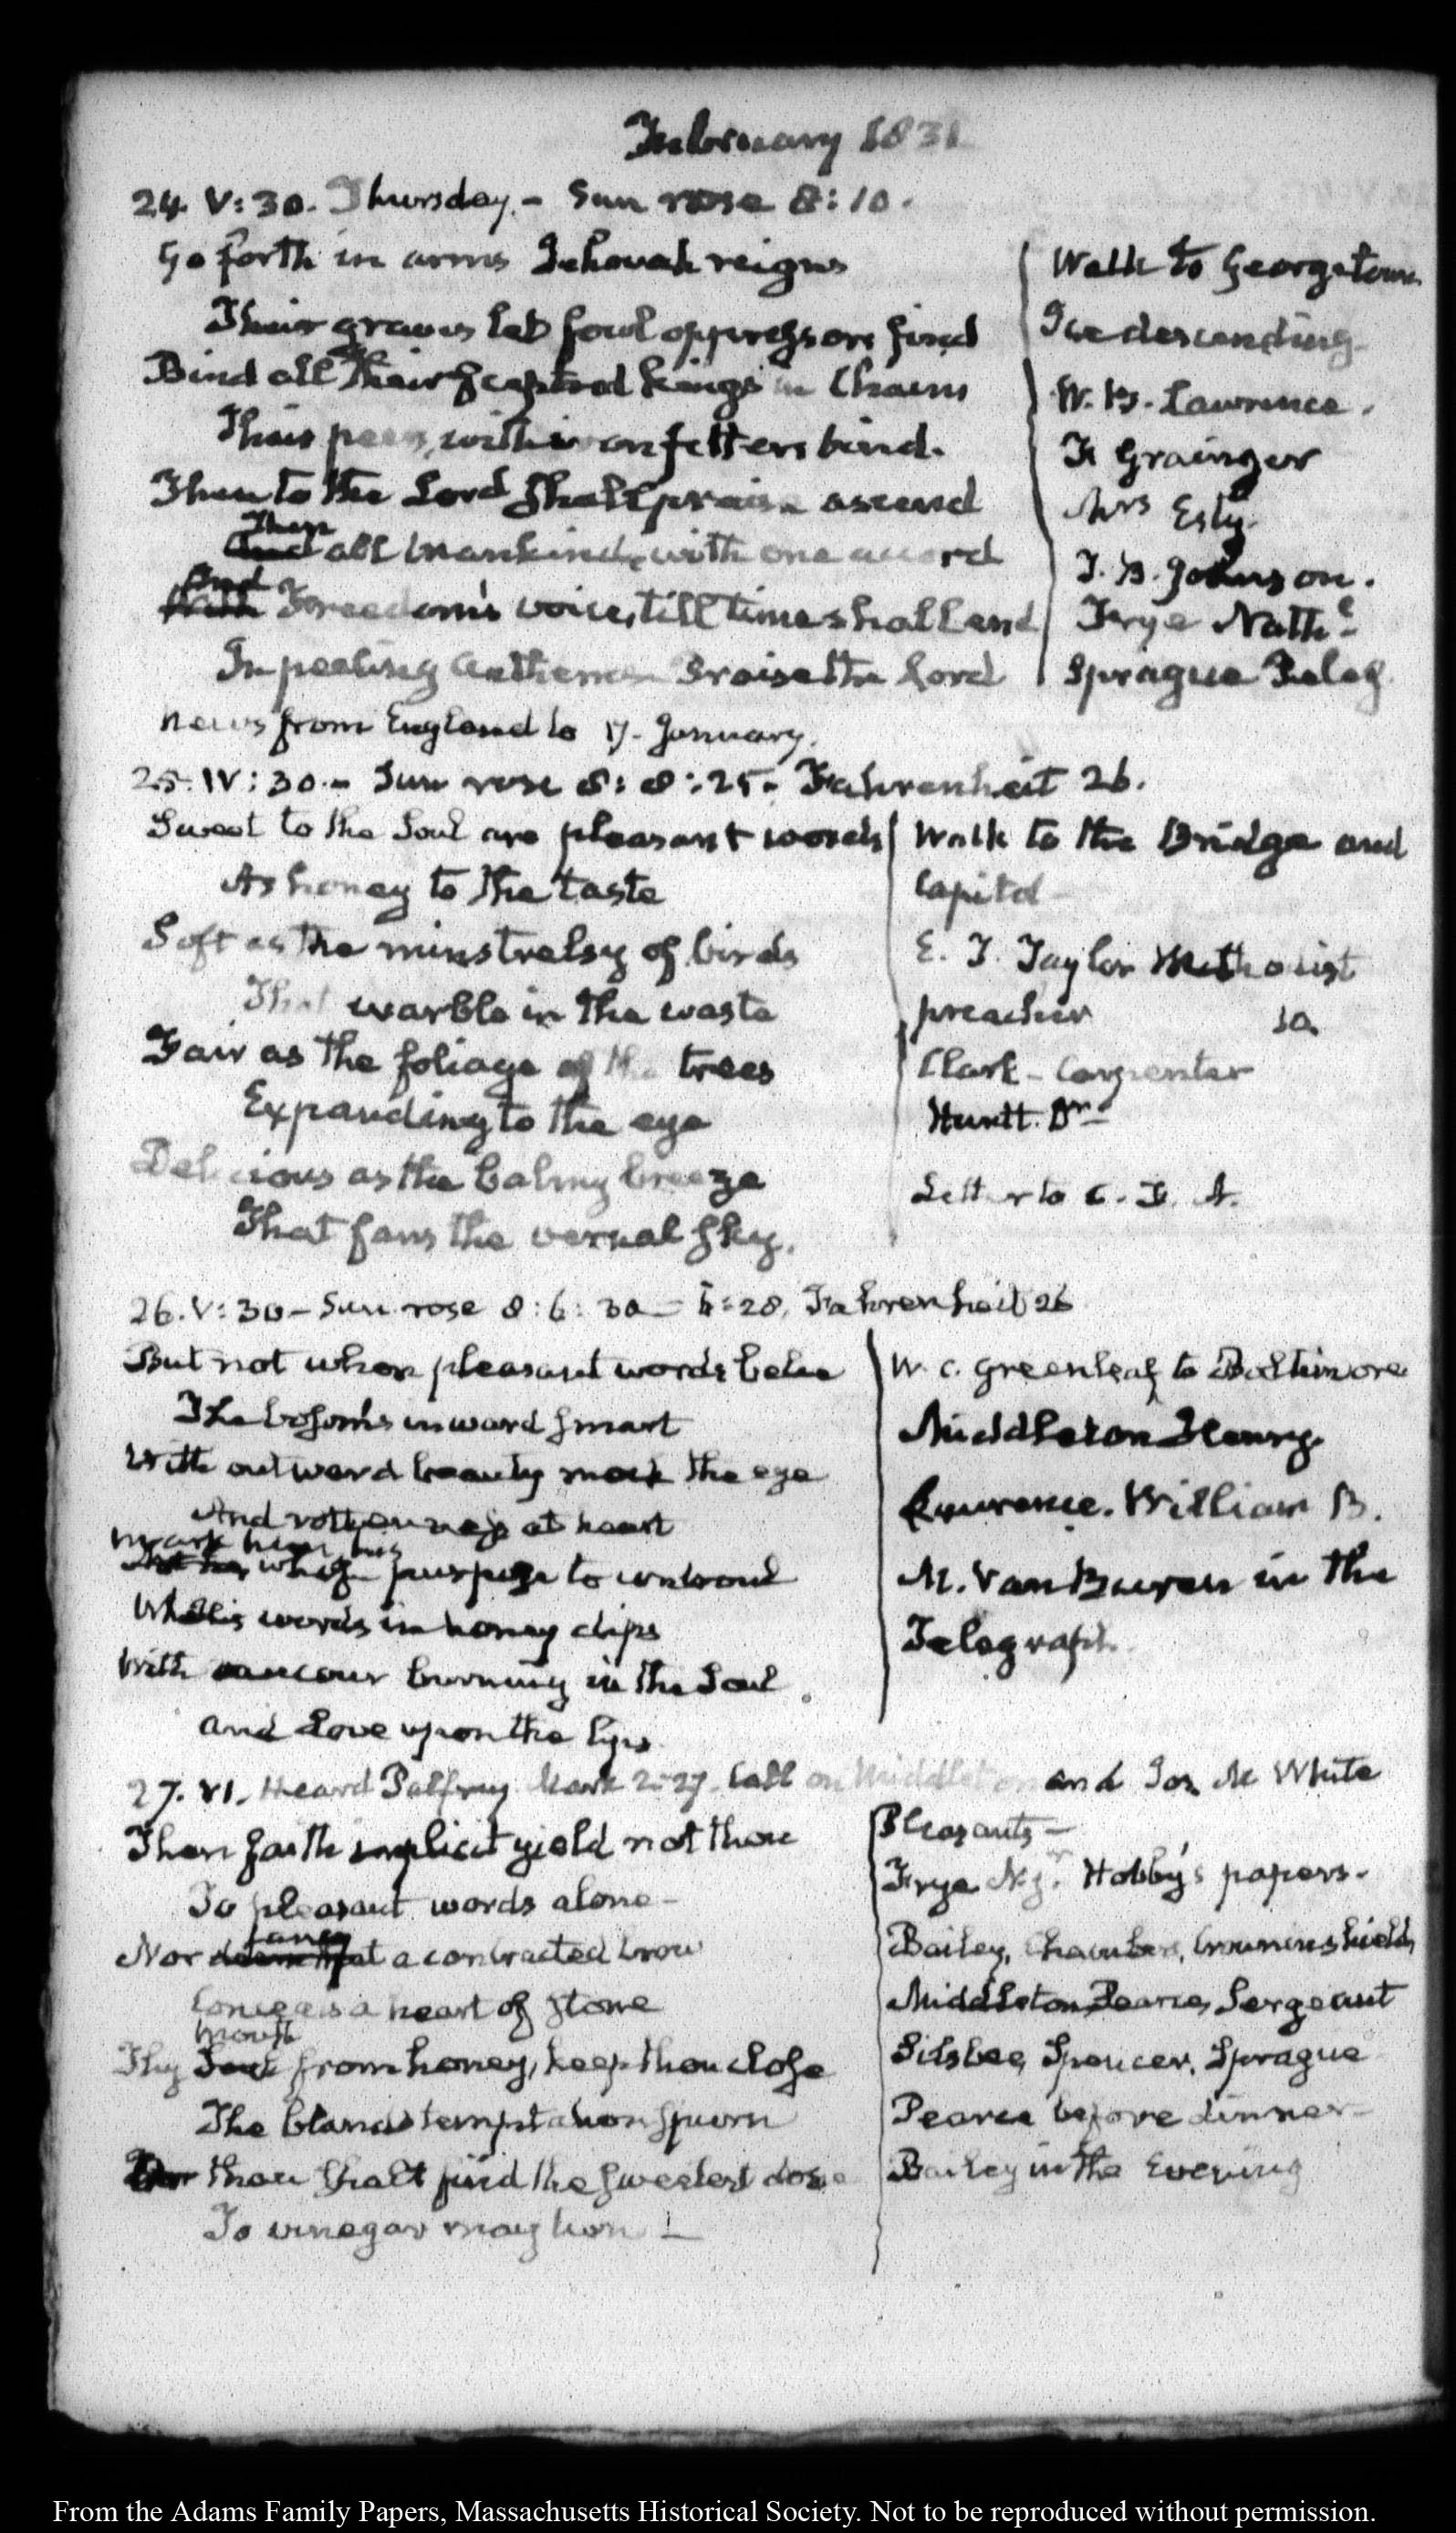 February 1831
24. V:30. Thursday. - Sun rose 8:10.
Go forth in arms Jehovah reigns
Their graves let foul oppressors find
Bind all their sceptred kings in Chains
Their peers, with iron fetters bind.
Then to the Lord shall praise ascend
Then
And all mankind, with one accord
And
With Freedom's voice, till time shall end
In pealing anthems Praise the Lord
Walk to Georgetown
Ice descending.
W. B. Lawrence.
F Grainger
Mrs Esty.
J. B. Johnson.
Frye Nathl
Sprague Peleg
News from England to 17. January.
25. IV:30.- Sun rose 8:8:25. Fahrenheit 26.
Sweet to the Soul are pleasant words
As honey to the taste
Soft as the minstrelsy of birds
That warble in the waste
Fair as the foliage of the trees
Expanding to the eye
Delicious as the balmy breeze
That fans the vernal sky.
Walk to the Bridge and
Capitol
E. T. Taylor Methodist
preacher 10.
Clark - Carpenter
Huntt. Dr-
Letter to C. F. A.
26. V:30 - Sun rose 8:6:30 - 5:28. Fahrenheit 26
But not when pleasant words belie
The bosom's inward smart
With outward beauty mock the eye
And rottenness at heart
mark him
whose purpose to
Whose words in honey dips
With rancour burning in the Soul
and Love upon the lips
W. C. Greenleaf to Baltimore
Middleton Henry
Lawrence. William B.
M. Van Buren in the
Telegraph.
27. VI. Heard Palfrey. Mark 2-27. Call on Middleton and Jos. M White
Then faith implicit yield not thou
To pleasant words alone-
fancy
Nor deem that a contracted brow
Conceals a heart of stone
mouth
Thy from honey, keep thou close
The bland temptation spurn
thou shalt find the sweetest dose
To vinegar may turn! -
Pleasants -
Frye N. Hobby's papers.
Bailey, Chambers, Crowninshield,
Middleton Pearce, Sergeant
Silsbee, Spencer, Sprague
Pearce before dinner-
Bailey in the Evening
From the Adams Family Papers, Massachusetts Historical Society. Not to be reproduced without permission.